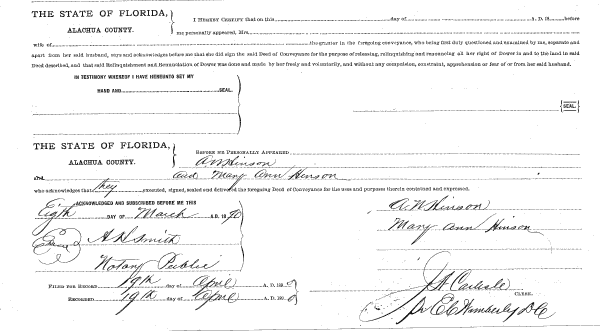 THE STATE OF FLORIDA,
ALACHUA COUNTY.
I HEREBY CERTIFY that on this day of A. D. 18 before
me personally appeared, Mrs.
wife of the grantor in the foregoing conveyance, who being first duly questioned and examined by me, separate and
apart from her said husband, says and acknowledges before me that she did sign the said Deed of Conveyance for the purpose of releasing, relinquishing and renouncing all her right of Dower in and to the land in said
Deed described, and that said Relinquishment and Renunciation of Dower was done and made by her freely and voluntarily, and without any compulsion, constraint, apprehension or fear of or from her said husband.
IN TESTIMONY WHEREOF I HAVE HEREUNTO SET MY
HAND AND SEAL.
[SEAL.]
THE STATE OF FLORIDA,
ALACHUA COUNTY.
BEFORE ME PERSONALLY APPEARED
A W Hinson
and Mary Ann Hinson
who acknowledges that they executed, signed, sealed and delivered the foregoing Deed of Conveyance for the uses and purposes therein contained and expressed.
ACKNOWLEDGED AND SUBSCRIBED BEFORE ME THIS
Eigth DAY OF March A.D. 1890
A H Smith
Notary Public
A. W Hinson
Mary Ann Hinson
FILED FOR RECORD 19th day of April A. D. 189
RECORDED 19th day of April A. D. 189
J. A. Carlisle
CLERK.
pr E C Wimberly D C